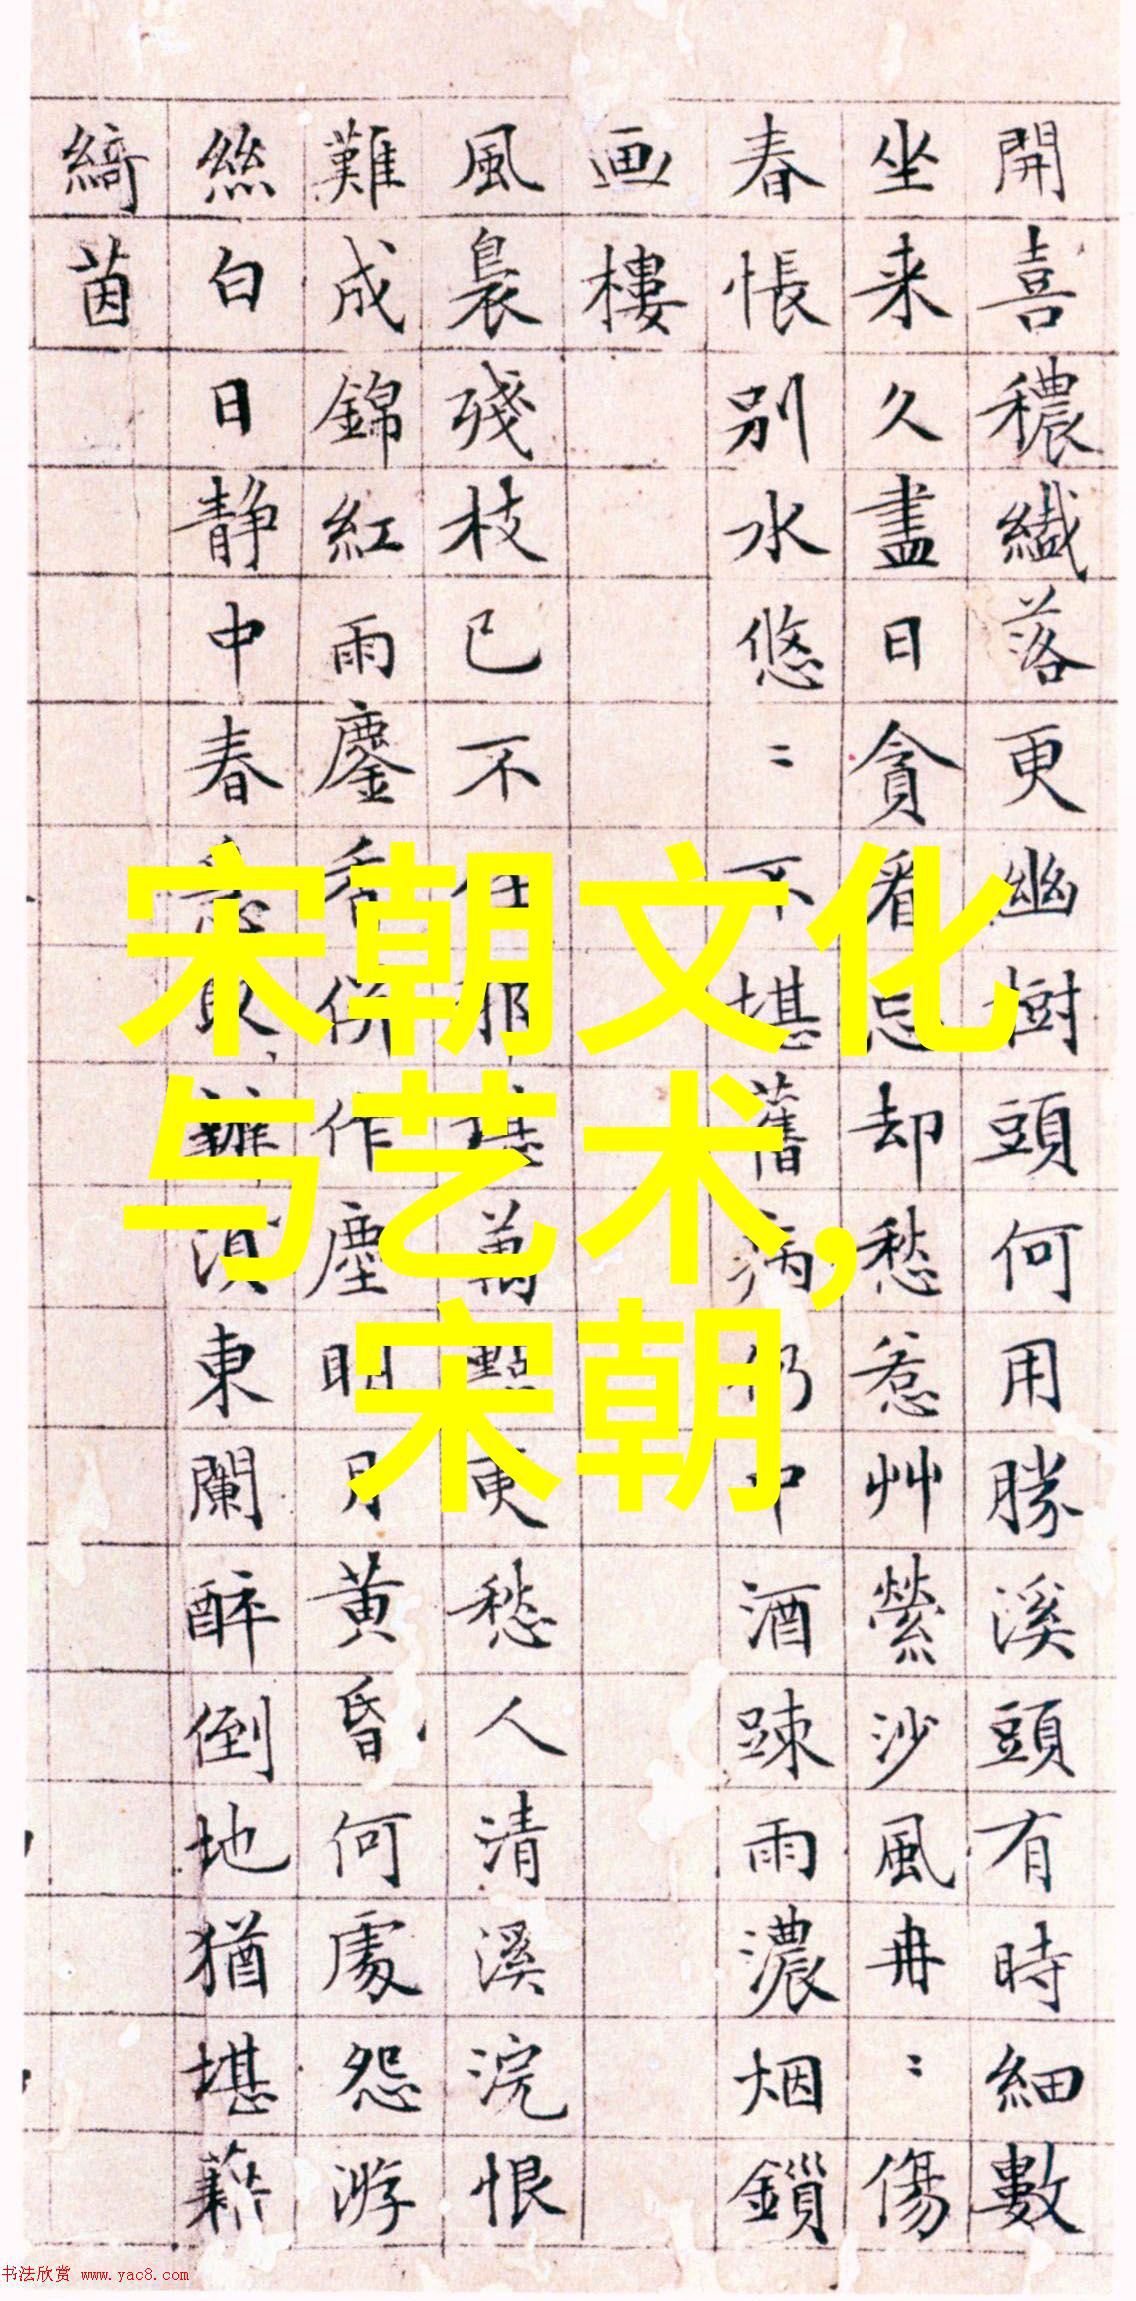 開喜穠纖落更幽樹頭何用勝溪頭有時細數
坐来久盡日貪看忘却愁惹艸縈沙風冉〻傷
春悵别水悠〻不堪舊病仍中酒踈雨濃烟鎖
画樓
風裊殘枝已不任那堪萬點更愁人清溪浣恨
難成錦紅雨鏖香併作塵明月黄昏何處怨游
絲白日靜中春取須東闌醉倒地猶堪藉
綺茵
宋朝文化
与艺术,
宋朝
书法欣赏 www.yac8.com